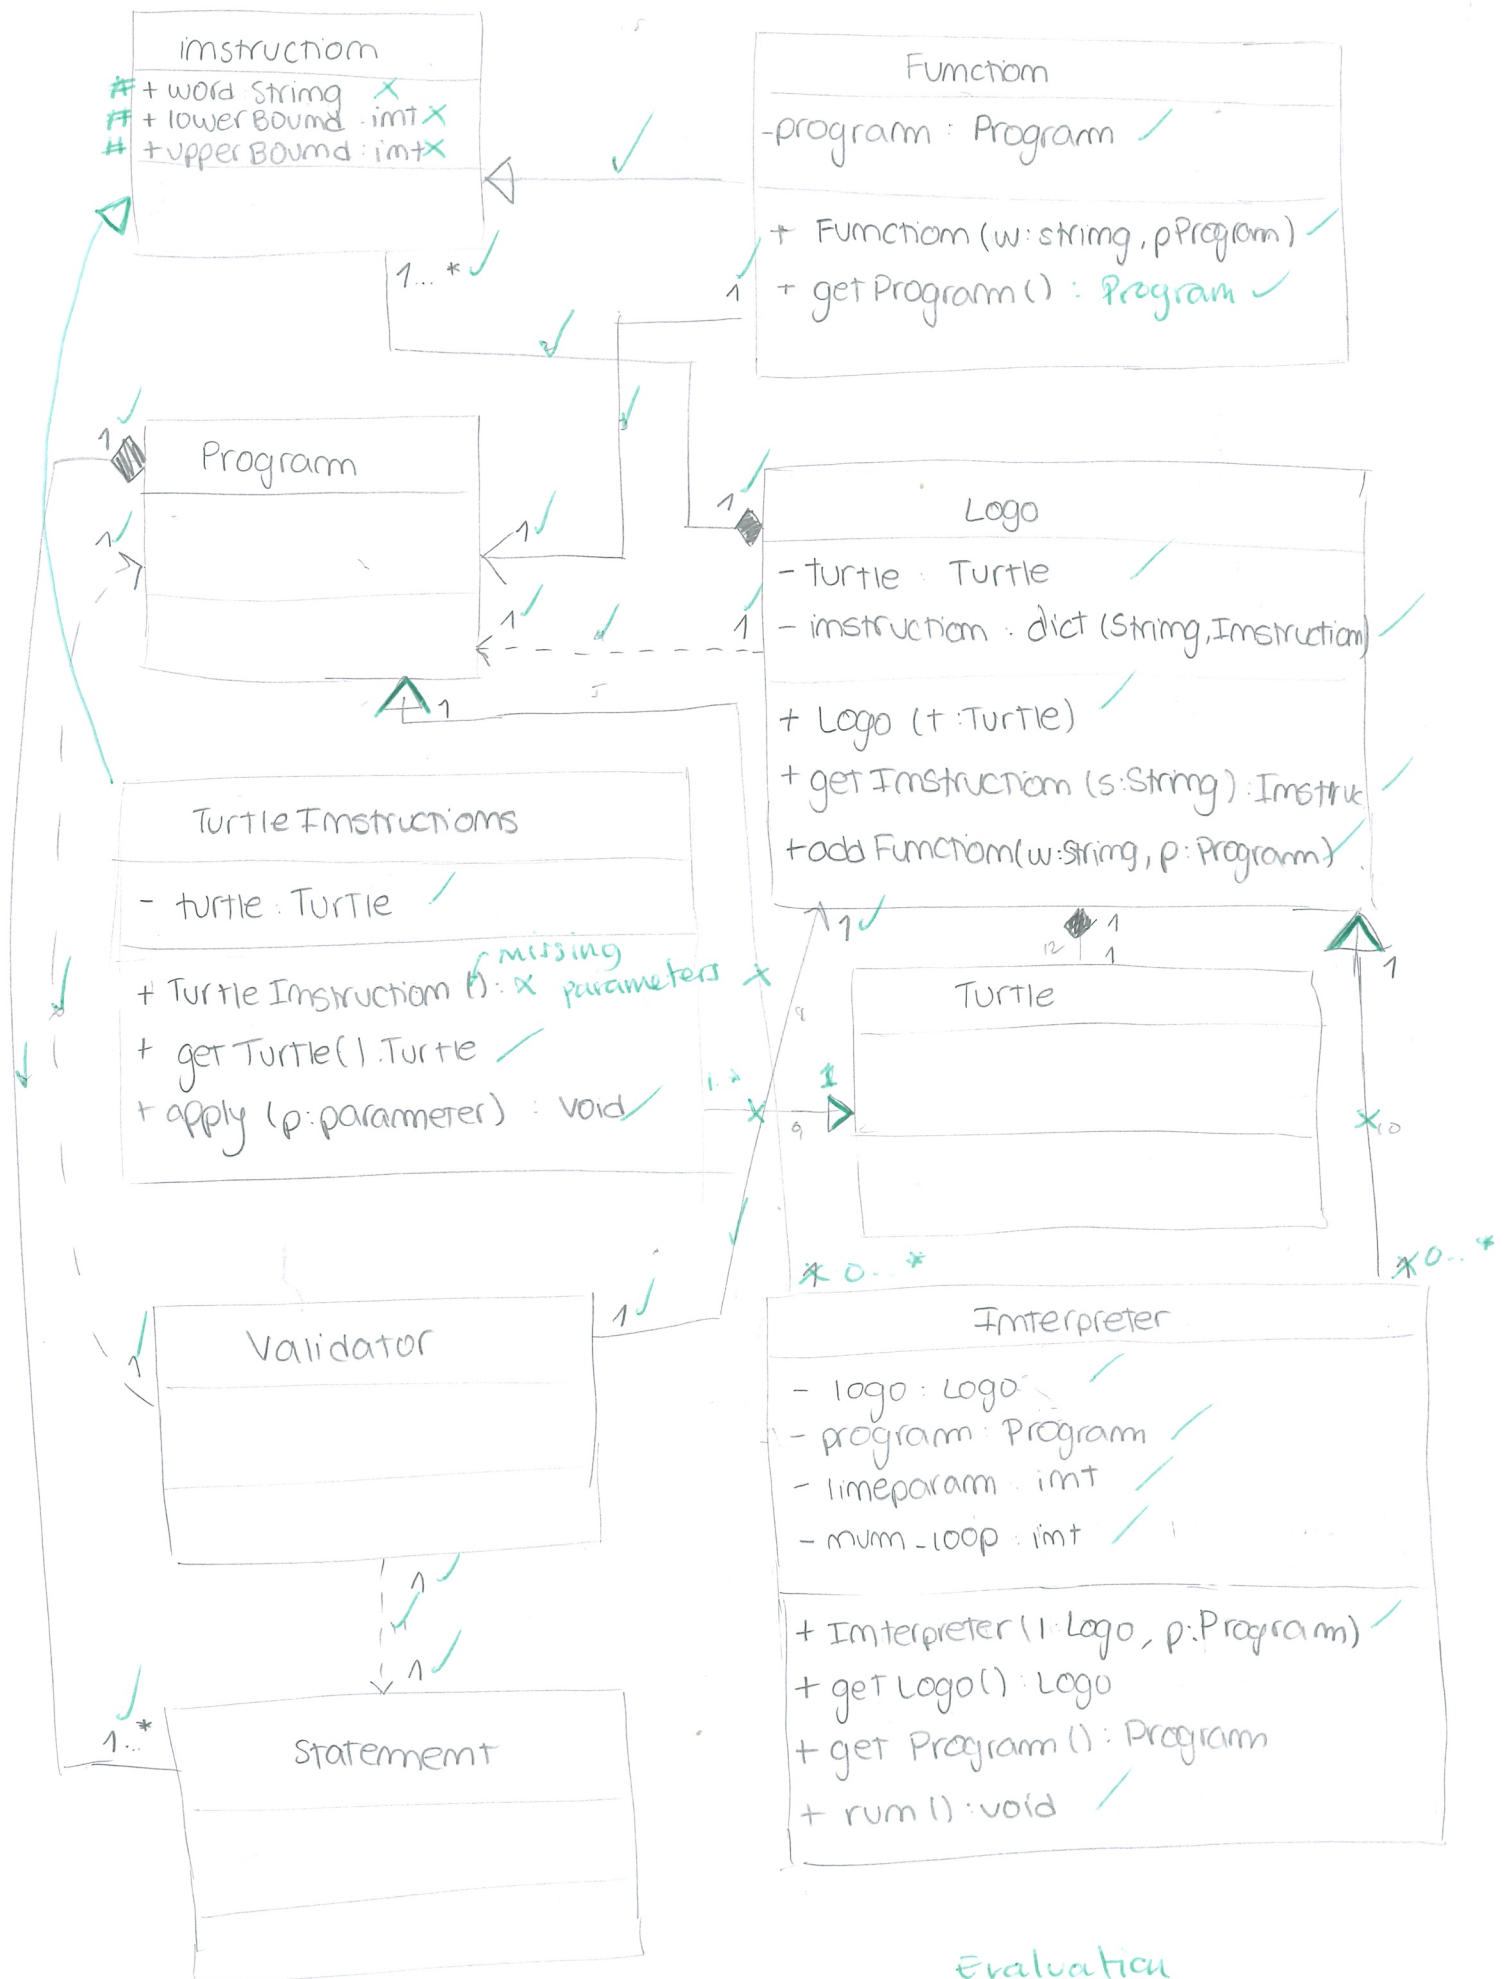 instruction
# + word String x
# + lowerBound : int x
# + upperBound : int x
Function
- program : Program
+ Function (w: string, p Program)
+ getProgram () : Program
1...*
1
1
1
1
1
1
1
1
Program
Logo
- turtle : Turtle
- instruction : dict (String, Instruction)
+ Logo (t : Turtle)
+ getInstruction (s: String) : Instruc
+ add Function (w: String, p: Program)
1
Turtle Instructions
- turtle : Turtle
missing
+ Turtle Instruction () : x parameters x
+ get Turtle () : Turtle
+ apply (p: parameter) : void
1
12
1
1
1
Turtle
8
1..*
1
9
10
1 0...*
1 0...*
Validator
1
1
Interpreter
- logo : Logo
- program : Program
- lineparam : int
- num_loop : int
+ Interpreter (l: Logo, p: Program)
+ getLogo () : Logo
+ get Program () : Program
+ run () : void
1
1
1...*
Statement
Evaluation